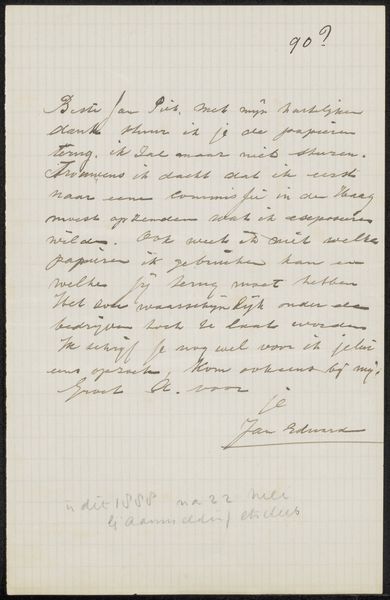 90?
Beste Jan Piet. Met mijn hartelijken
dank stuur ik je de papieren
terug. ik zal maar niet sturen.
Trouwens ik dacht dat ik eerst
naar eene commissie in de Haag
moest opzenden wat ik exposeeren
wilde. Ook weet ik niet welke
papieren ik gebruiken kan en
welke jij terug moet hebben
Het zou waarschijnlijk onder de
bedrijven toch te laat worden
Ik schrijf je nog wel voor ik jelui
eens opzoek, Kom ook eens bij mij.
Groet A. voor
je
Jan Edward
is dit 1888 na 22
bij Aanmelding